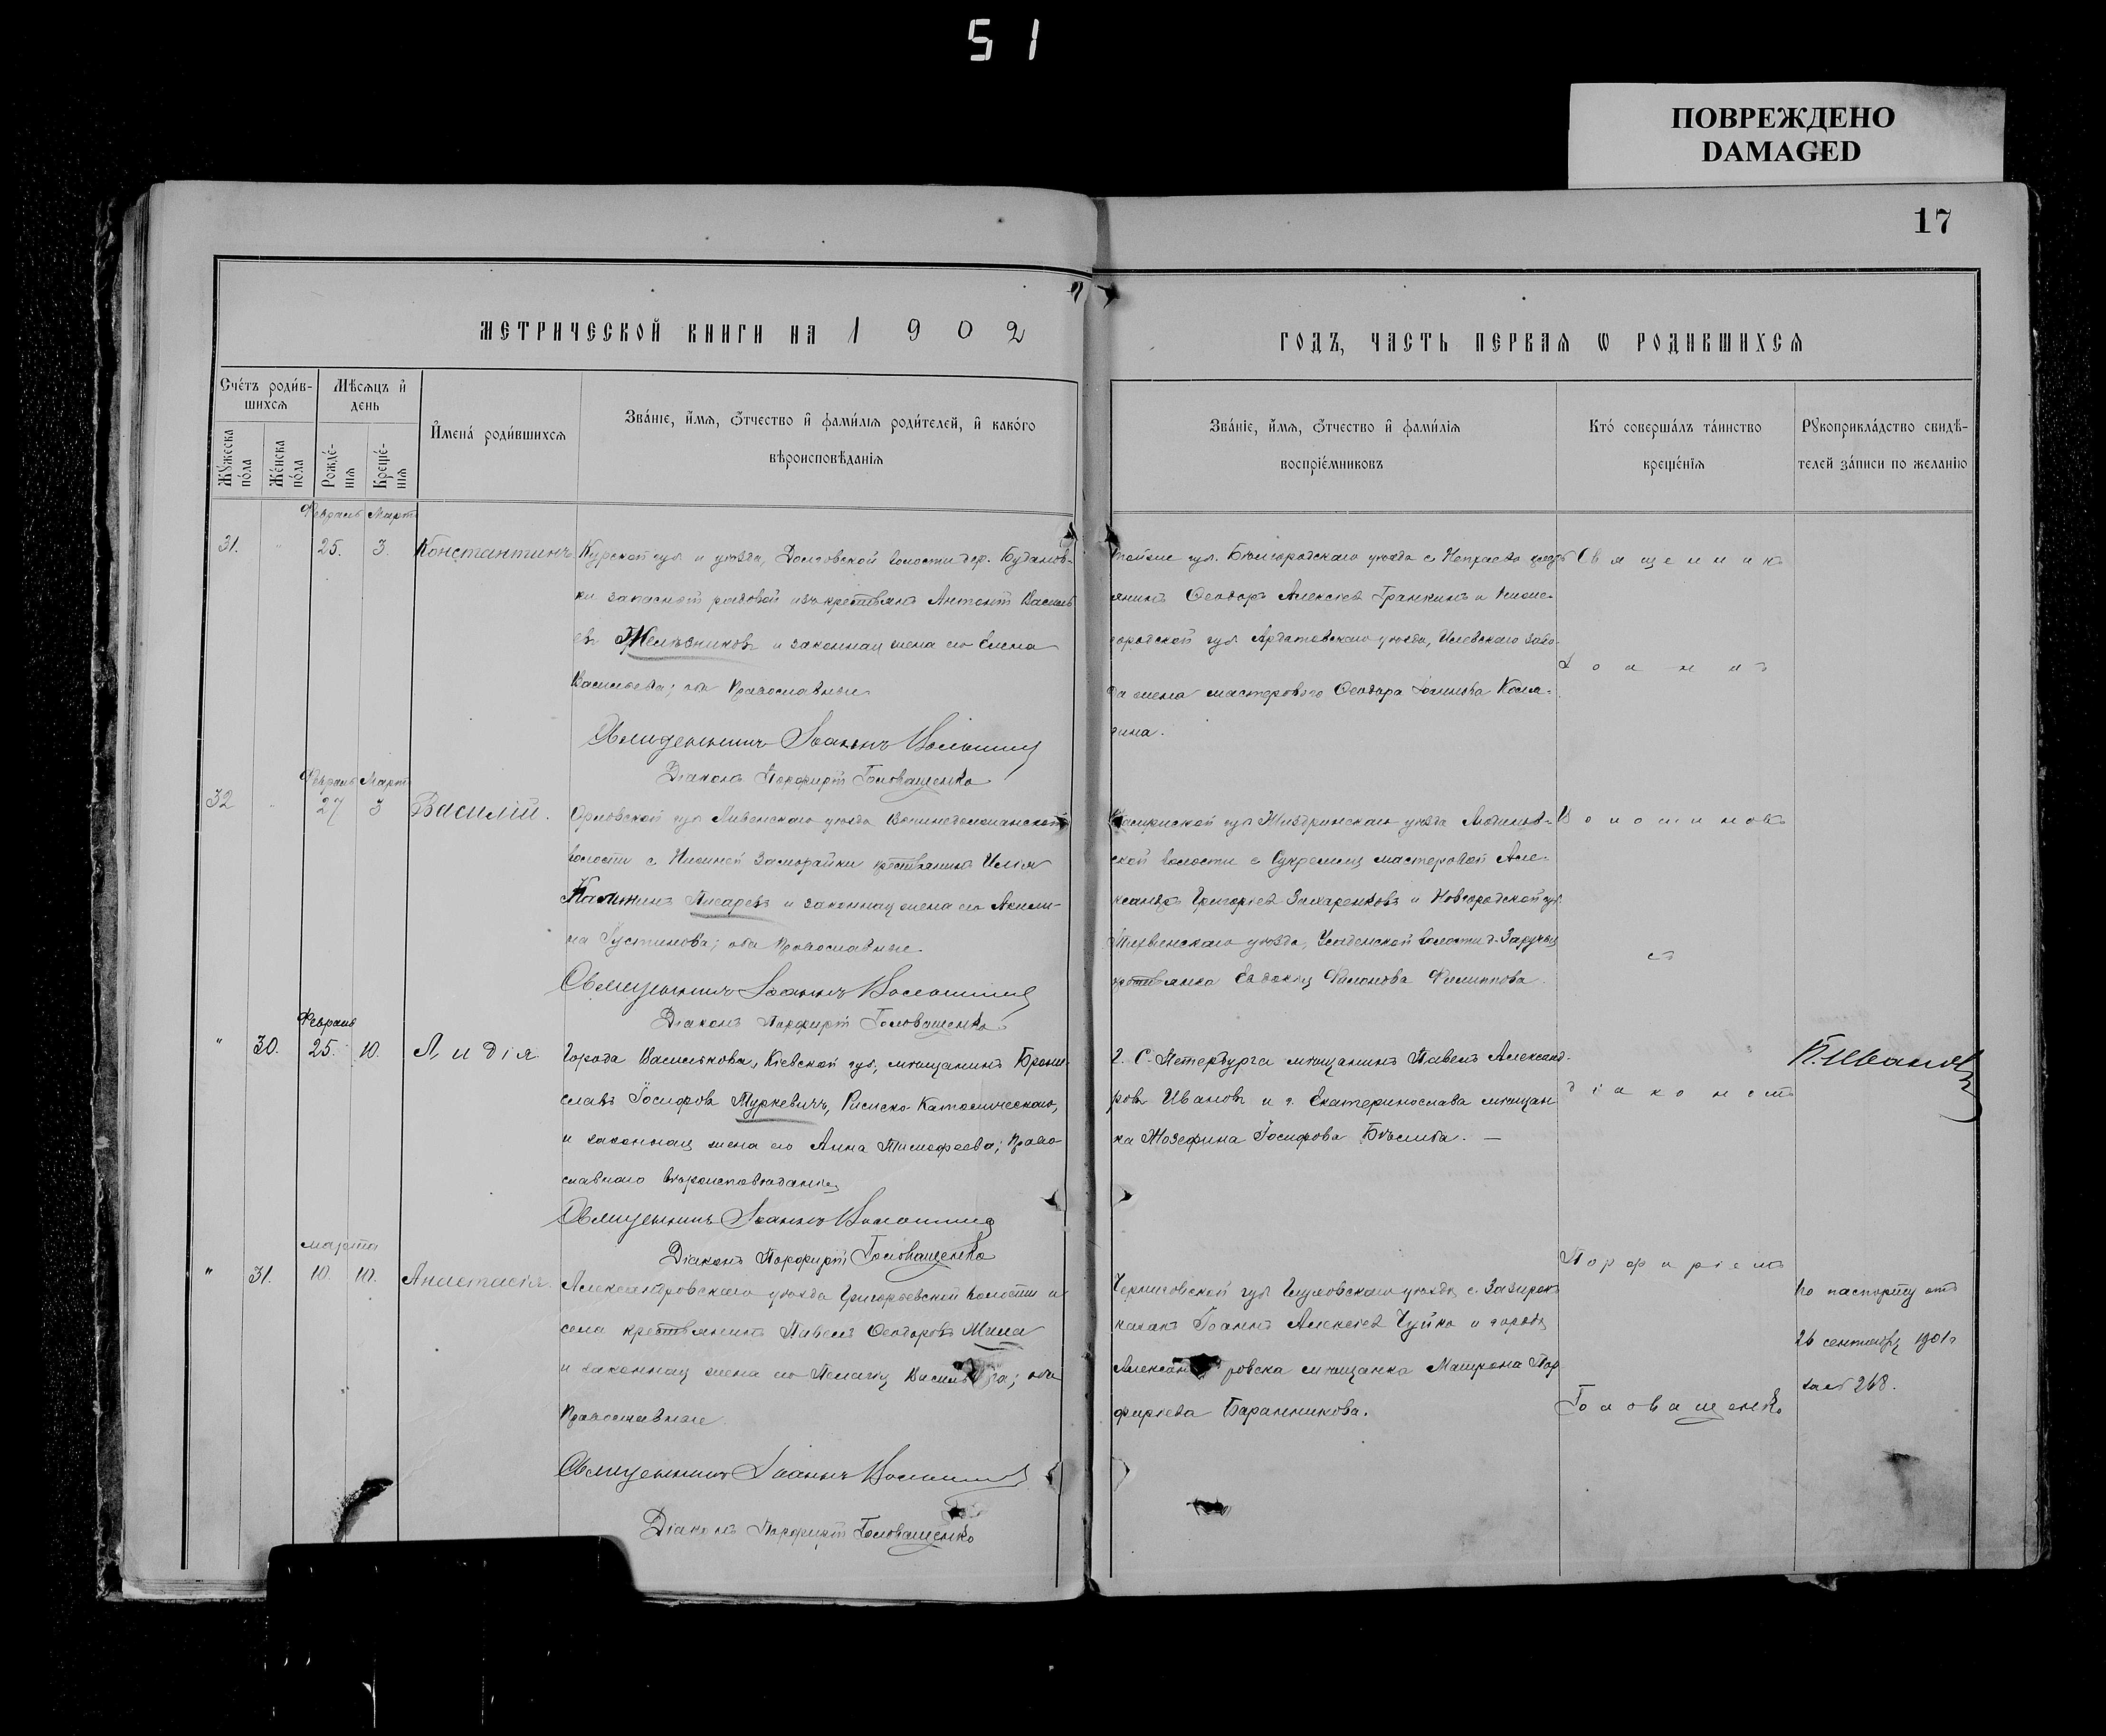 51
ПОВРЕЖДЕНО
DAMAGED
17
МЕТРИЧЕСКОЙ КНИГИ НА 1902
ГОДЪ, ЧАСТЬ ПЕРВАЯ Ѡ РОДИВШИХСЯ
Счетъ родив-
шихся
Мѣсяцъ и
день
Мужеска
пола
Женска
пола
Рожде-
нія
Креще-
нія
Имена родившихся
Званіе, имя, отчество и фамилія родителей, и какого
вѣроисповѣданія
Званіе, имя, отчество и фамилія
воспріемниковъ
Кто совершалъ таинство
крещенія
Рукоприкладство свидѣ-
телей записи по желанію
Февраль Мартъ
31. " 25. 3. Константинъ
Курской губ. и уѣзда, волости дер. Буданов-
ки запасной рядовой изъ крестьянъ Антонъ Василь
евъ и законная жена его Елена
Васильева; оба Православные
Священникъ Іоаннъ Волошинъ
Діаконъ Порфирій Головащенко
губ. Бѣлгородскаго уѣзда с.
янинъ Ѳеодоръ Алексѣевъ Гранкинъ и Ниже-
городской губ. Ардатовскаго уѣзда, Илевскаго заво-
да жена мастерового Ѳеодора Іоаннова
Священникъ
Іоаннъ
Февраль Мартъ
32 " 27 3 Василій.
Орловской губ. Ливенскаго уѣзда
волости с. крестьянинъ Илія
Писаревъ и законная жена его Акили-
на Іустинова; оба Православные
Священникъ Іоаннъ Волошинъ
Діаконъ Порфирій Головащенко
губ. Жиздринскаго уѣзда Людинов-
ской волости с. Сукремля мастеровой Але-
ксандръ Григорьевъ Захаренковъ и Новгородской губ.
уѣзда, волости д. Заручья
крестьянка Евдокія Филиппова.
Волошиновъ
съ
Февраль
" 30. 25. 10. Лидія
Города Василькова, Кіевской губ., мѣщанинъ Брони-
славъ Іосифовъ Муркевичъ, Римско-Католическаго,
и законная жена его Анна Тимофеева; Право-
славнаго вѣроисповѣданія
Священникъ Іоаннъ Волошинъ
Діаконъ Порфирій Головащенко
г. С.-Петербурга мѣщанинъ Павелъ Александ-
ровъ Ивановъ и г. Екатеринослава мѣщан
ка Жозефина Іосифова
діакономъ
П. Ивановъ
марта
" 31. 10. 10. Анастасія
Александровскаго уѣзда Григорьевской волости и
села крестьянинъ Павелъ Ѳеодоровъ Мина
и законная жена его Пелагія Васильева; оба
Православные.
Священникъ Іоаннъ Волошинъ
Діаконъ Порфирій Головащенко
Черниговской губ. Глуховскаго уѣзда с. Зазирокъ
казакъ Іоаннъ Алексѣевъ Чуйко и города
Александровска мѣщанка Матрона Пор
фиріева Баранникова.
Порфиріемъ
Головащенко
по паспорту отъ
26 сентября 1901 г.
за № 268.